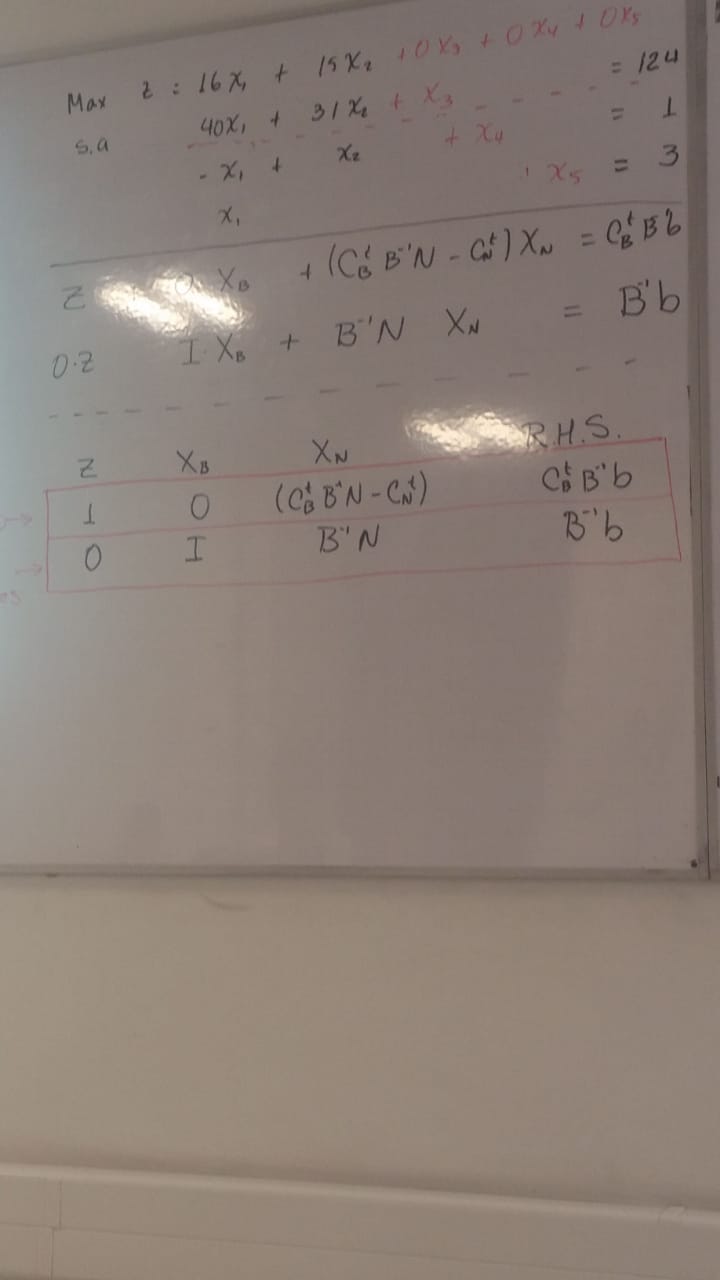 Max z = 16x₁ + 15x₂ + 0x₃ + 0x₄ + 0x₅
s.a 40x₁ + 31x₂ + x₃ = 124
- x₁ + x₂ + x₄ = 1
x₁ + x₅ = 3
Z 0 X_B + (C_B^t B⁻¹N - C_N^t) X_N = C_B^t B⁻¹b
0·Z I·X_B + B⁻¹N X_N = B⁻¹b
Z X_B X_N R.H.S.
1 0 (C_B^t B⁻¹N - C_N^t) C_B^t B⁻¹b
0 I B⁻¹N B⁻¹b